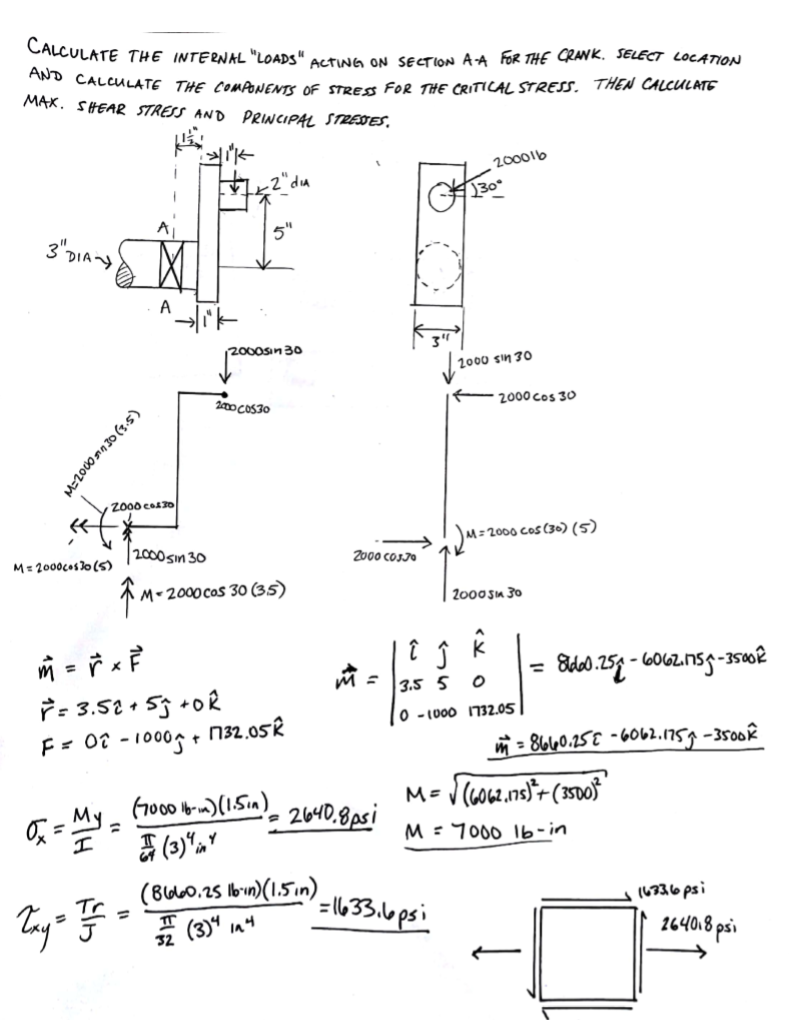 CALCULATE THE INTERNAL "LOADS" ACTING ON SECTION A-A FOR THE CRANK. SELECT LOCATION
AND CALCULATE THE COMPONENTS OF STRESS FOR THE CRITICAL STRESS. THEN CALCULATE
MAX. SHEAR STRESS AND PRINCIPAL STRESSES.
1½"
1"
2" DIA
5"
A
3" DIA
A
1"
2000lb
30°
3"
2000sin30
2000cos30
M=2000sin30(3.5)
2000cos30
2000sin30
M=2000cos30(5)
M=2000cos30(3.5)
2000 sin30
2000cos30
M=2000cos(30)(5)
2000cos30
2000sin30
m⃗ = r⃗ × F⃗
r⃗ = 3.5î + 5ĵ + 0k̂
F = 0î - 1000ĵ + 1732.05k̂
m⃗ = | î ĵ k̂ | = 8660.25î - 6062.175ĵ - 3500k̂
3.5 5 0
0 -1000 1732.05
m⃗ = 8660.25î - 6062.175ĵ - 3500k̂
σx = My/I = (7000 lb-in)(1.5in) / (π/64 (3)⁴ in⁴) = 2640.8psi
M = √((6062.175)² + (3500)²)
M = 7000 lb-in
τxy = Tr/J = (8660.25 lb-in)(1.5in) / (π/32 (3)⁴ in⁴) = 1633.6psi
1633.6 psi
2640.8 psi